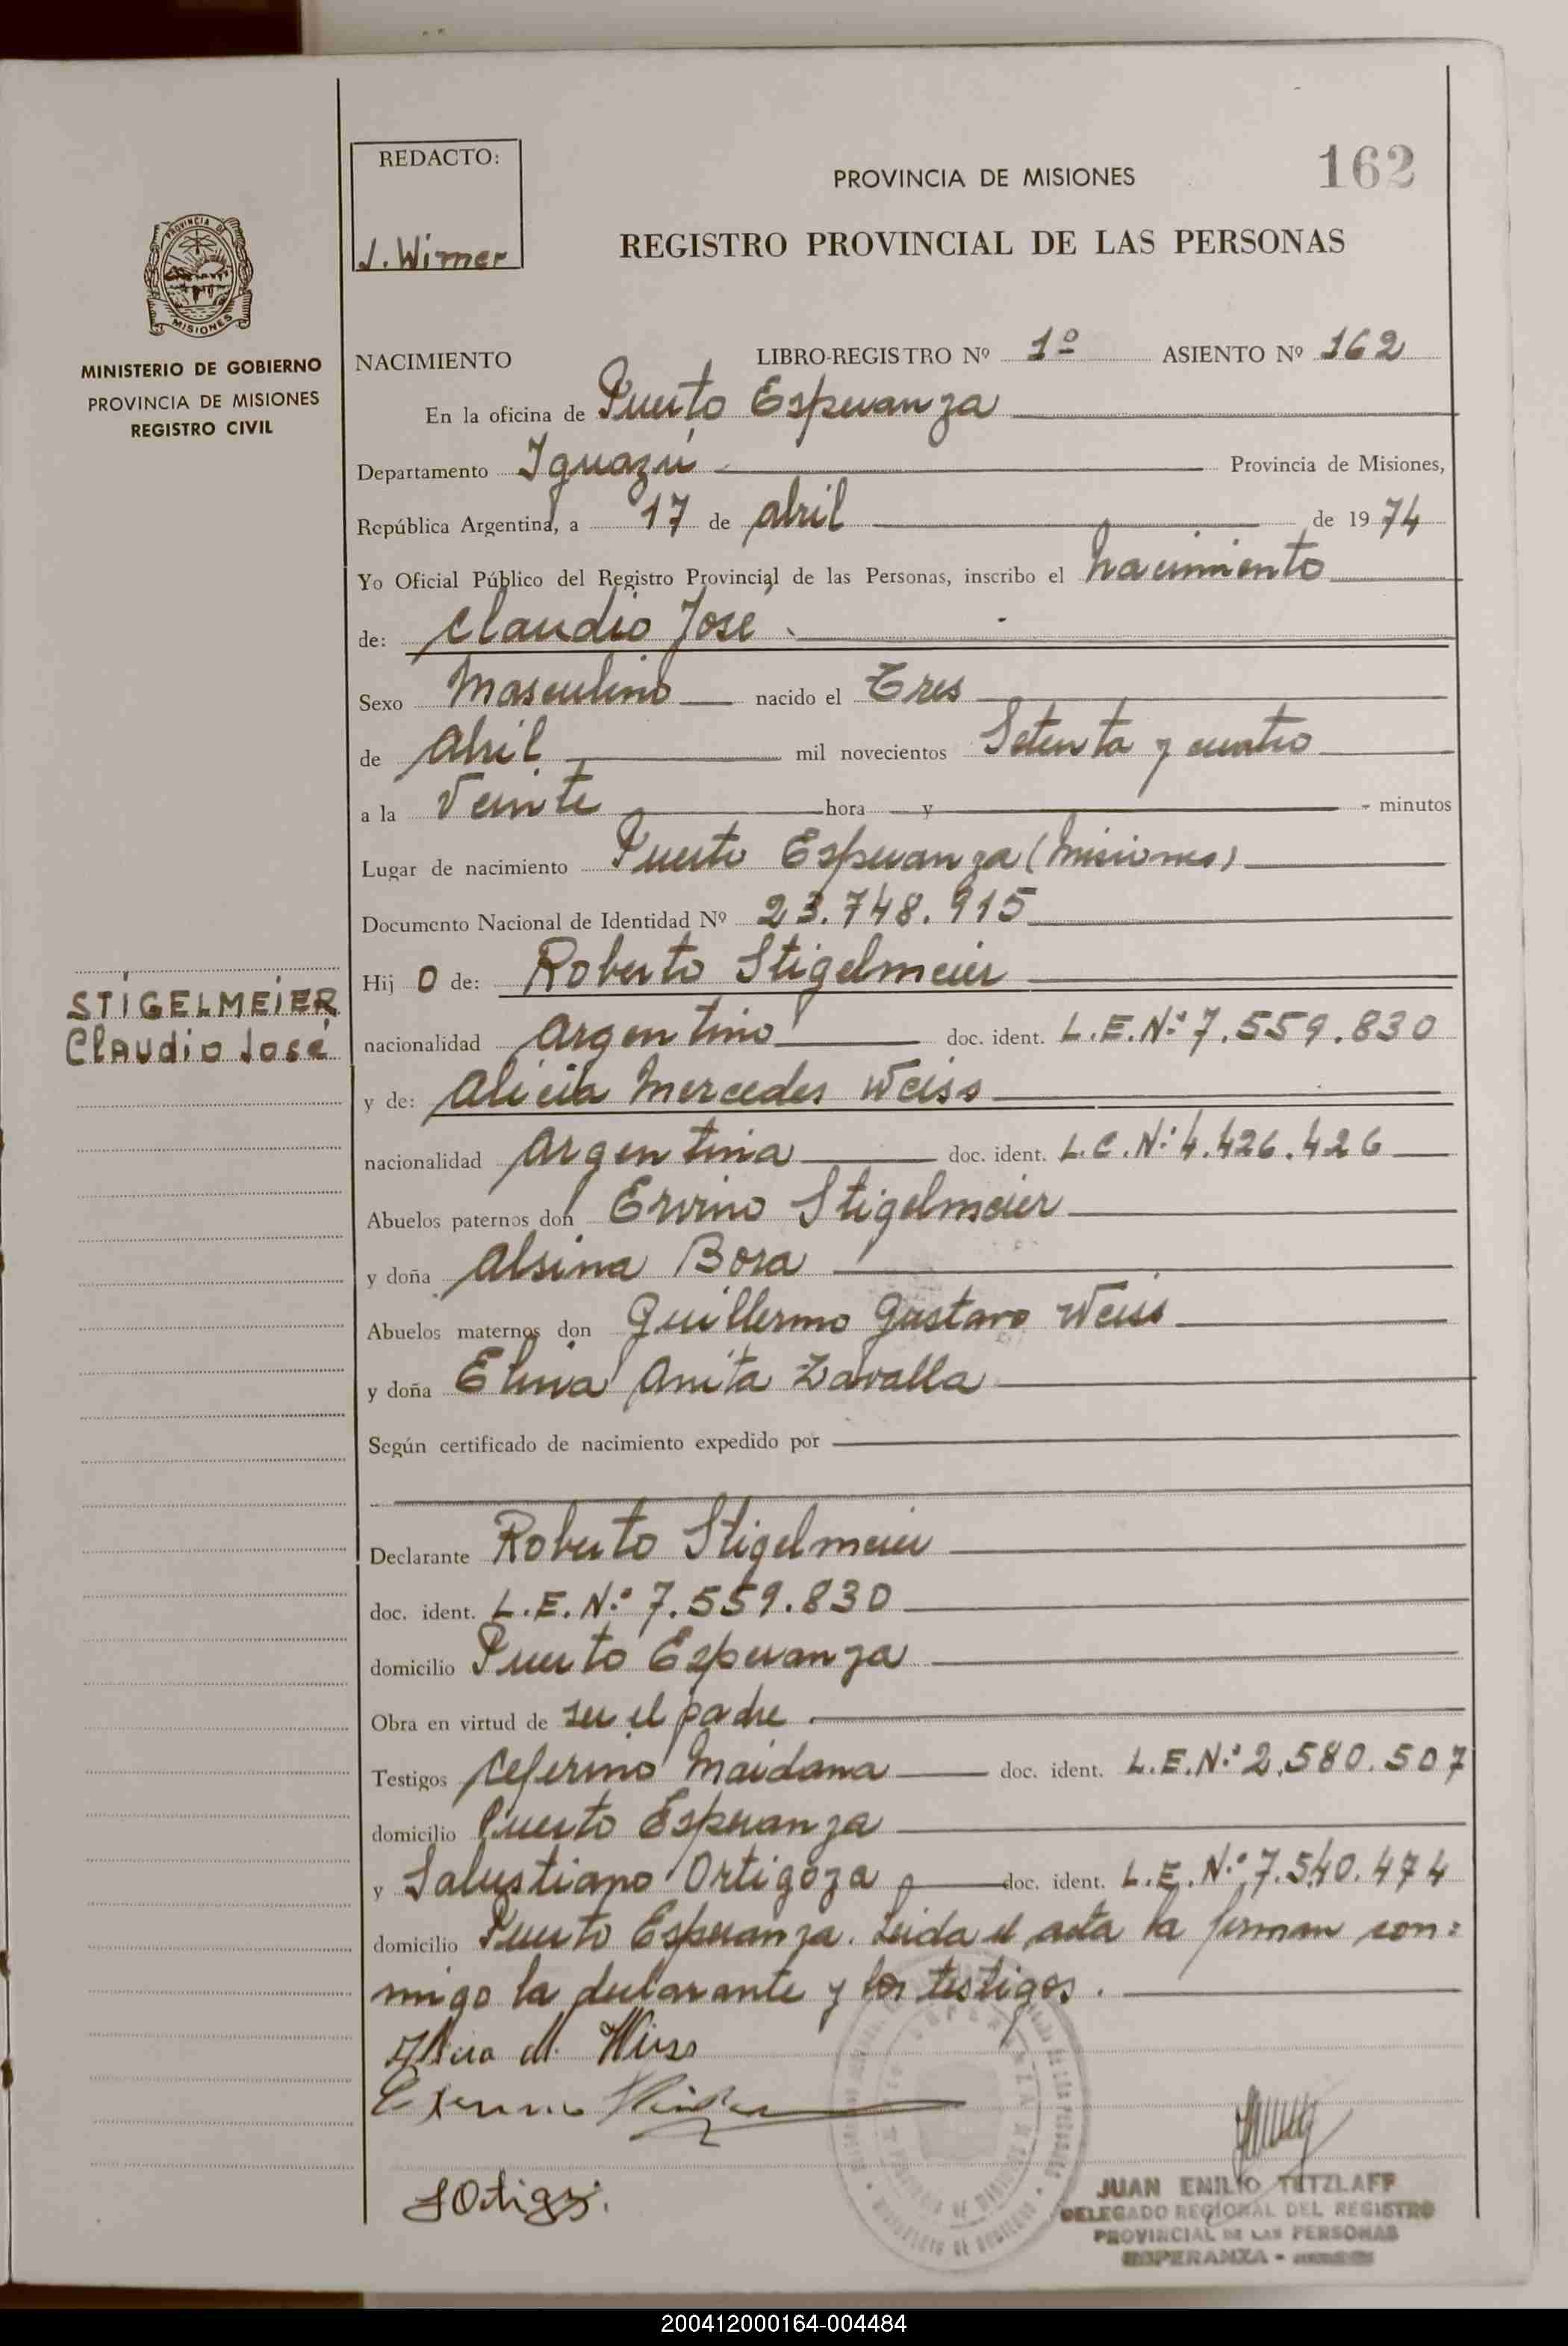 REDACTO:
J. Wirner
PROVINCIA DE MISIONES
162
REGISTRO PROVINCIAL DE LAS PERSONAS
PROVINCIA DE
MISIONES
MINISTERIO DE GOBIERNO
PROVINCIA DE MISIONES
REGISTRO CIVIL
NACIMIENTO LIBRO-REGISTRO Nº 1º ASIENTO Nº 162
En la oficina de Puerto Esperanza
Departamento Iguazú Provincia de Misiones,
República Argentina, a 17 de abril de 1974
Yo Oficial Público del Registro Provincial de las Personas, inscribo el nacimiento
de: Claudio José
Sexo Masculino nacido el Tres
de Abril mil novecientos Setenta y cuatro
a la Veinte hora y minutos
Lugar de nacimiento Puerto Esperanza (Misiones)
Documento Nacional de Identidad Nº 23.748.915
Hijo de: Roberto Stigelmeier
STIGELMEIER
Claudio José
nacionalidad Argentino doc. ident. L.E.Nº 7.559.830
y de: Alicia Mercedes Weiss
nacionalidad Argentina doc. ident. L.C.Nº 4.426.426
Abuelos paternos don Ervino Stigelmeier
y doña Alsina Bora
Abuelos maternos don Guillermo Gustavo Weiss
y doña Elvia Anita Zavalla
Según certificado de nacimiento expedido por
Declarante Roberto Stigelmeier
doc. ident. L.E.Nº 7.559.830
domicilio Puerto Esperanza
Obra en virtud de ser el padre.
Testigos Ceferino Maidana doc. ident. L.E.Nº 2.580.507
domicilio Puerto Esperanza
y Salustiano Ortigoza doc. ident. L.E.Nº 7.540.474
domicilio Puerto Esperanza. Leida el acta la firman con=
migo la declarante y los testigos.
JUAN EMILIO TETZLAFF
DELEGADO REGIONAL DEL REGISTRO
PROVINCIAL DE LAS PERSONAS
ESPERANZA -
200412000164-004484